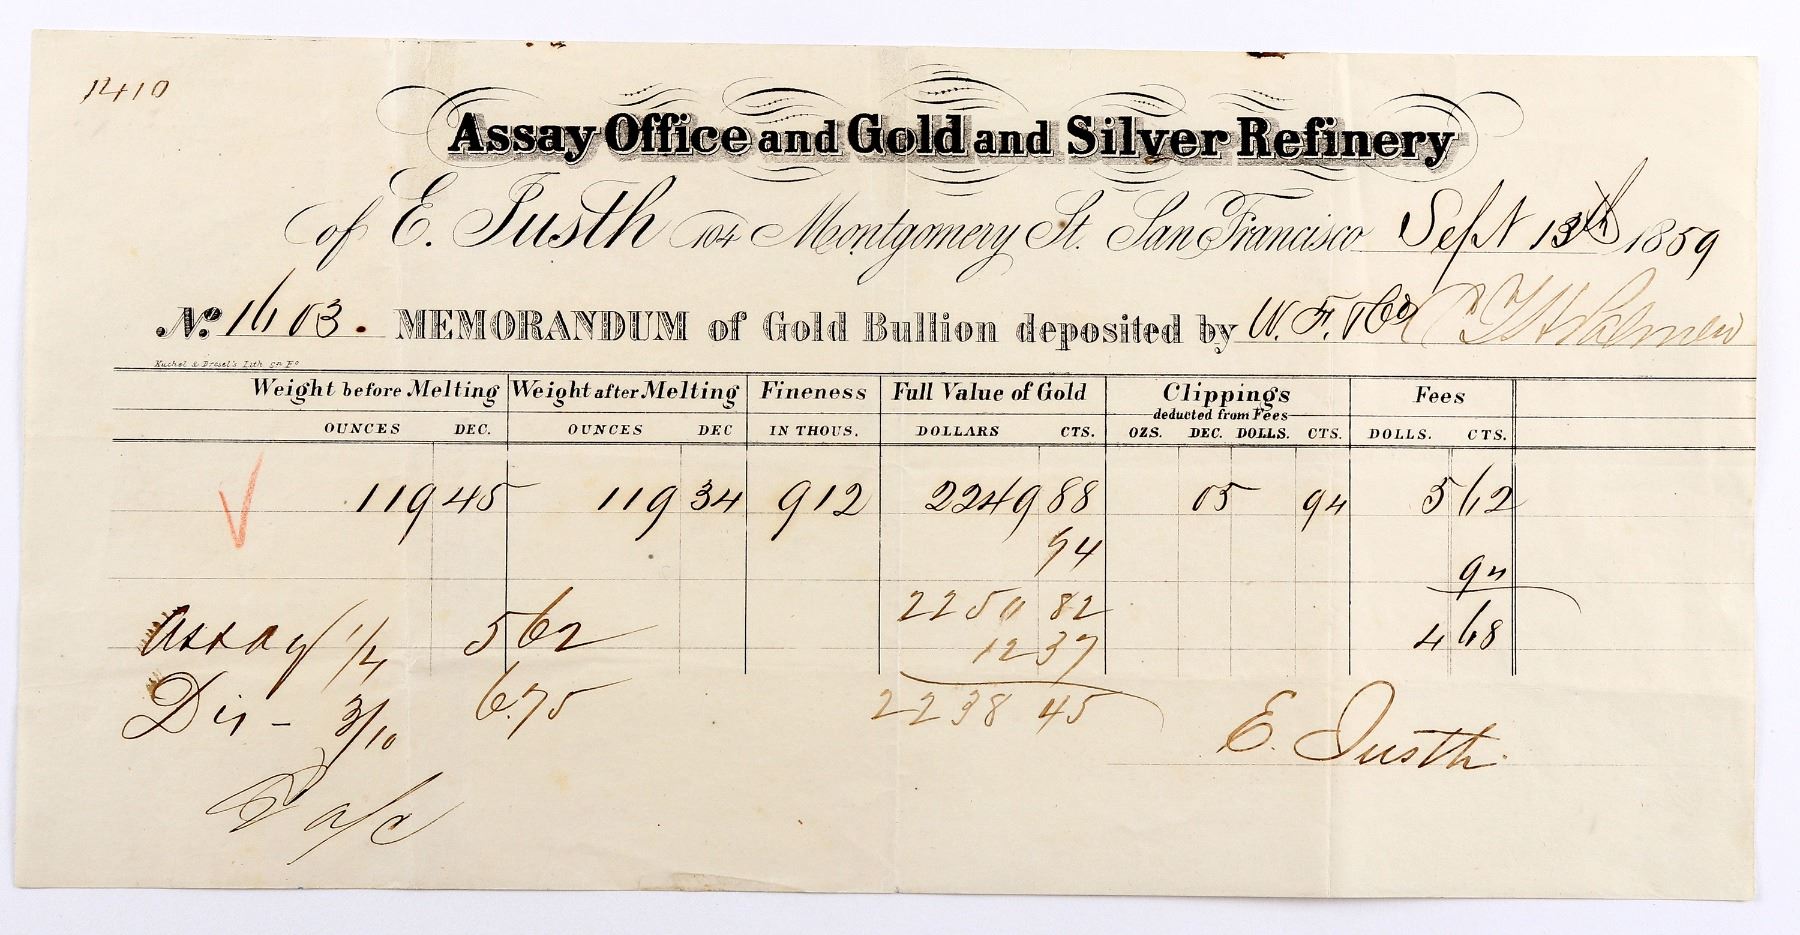 1410
Assay Office and Gold and Silver Refinery
of E. Justh 104 Montgomery St. San Francisco Sept 13th 1859
No. 1603. MEMORANDUM of Gold Bullion deposited by W. F. & Co
Kuchel & Dresel's Lith. S. Fo
Weight before Melting Weight after Melting Fineness Full Value of Gold Clippings Fees
deducted from Fees
OUNCES DEC. OUNCES DEC IN THOUS. DOLLARS CTS. OZS. DEC. DOLLS. CTS. DOLLS. CTS.
119 45 119 34 912 2249 88 05 94 5 62
94 94
2250 82
Assay 1/4 5 62 12 37 4 68
Dis - 3/10 6.75 2238 45
E. Justh.
a/c